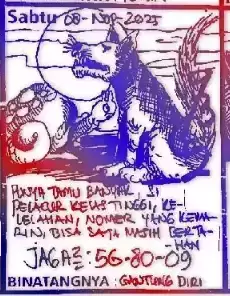 Sabtu 08-NOP-2025
PUNYA TAMU BANYAK. SI
PELACUR KELAS TINGGI, KE-
LELAHAN, NOMER YANG KEMA-
RIN, BISA SAJA MASIH BERTA-
HAN
JAGA2 : 56-80-09
BINATANGNYA : GANTUNG DIRI